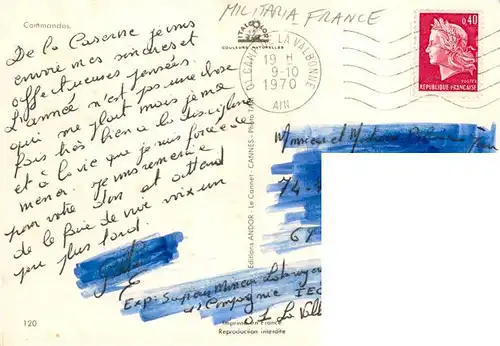 Commandos.
MILITARIA FRANCE
De la Caserne je vous
envoie mes sincères et
affectueuses pensées.
L'année n'est pas une chose
qui me plait mais je me
fais très bien à la discipline
et à la vie que je suis forcé de
mener. Je vous remercie
pour votre don et attend
de la Baie de vive voix un
peu plus tard.
COULEURS NATURELLES
CAMP LA VALBONNE
19 H
9-10
1970
AIN
0,40
POSTES
REPUBLIQUE FRANÇAISE
Editions ANDOR - Le Cannet - CANNES - Photo
Monsieur et Madame
74
69
Exp: Sapeur Mineur
Compagnie
La Valb
120
Imprimé en France
Reproduction interdite